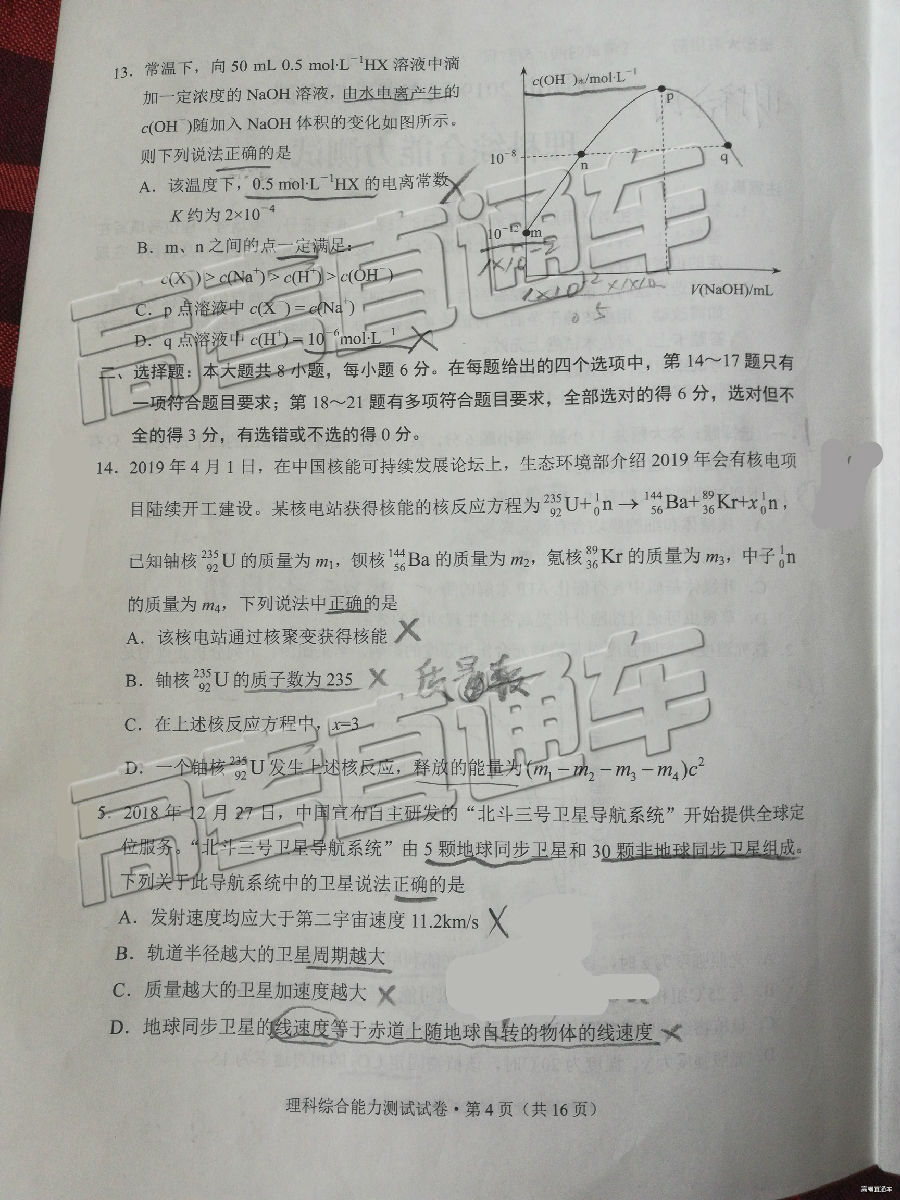 13．常温下，向 50 mL 0.5 mol·L⁻¹HX 溶液中滴
加一定浓度的 NaOH 溶液，由水电离产生的
c(OH⁻)随加入 NaOH 体积的变化如图所示。
则下列说法正确的是
A．该温度下，0.5 mol·L⁻¹HX 的电离常数
K 约为 2×10⁻⁴
B．m、n 之间的点一定满足：
c(X⁻)＞c(Na⁺)＞c(H⁺)＞c(OH⁻)
C．p 点溶液中 c(X⁻)＝c(Na⁺)
D．q 点溶液中 c(H⁺)＝10⁻⁶mol·L⁻¹
c(OH⁻)水/mol·L⁻¹
p
10⁻⁸
n
q
10⁻¹²
m
V(NaOH)/mL
二、选择题：本大题共 8 小题，每小题 6 分。在每题给出的四个选项中，第 14～17 题只有
一项符合题目要求；第 18～21 题有多项符合题目要求，全部选对的得 6 分，选对但不
全的得 3 分，有选错或不选的得 0 分。
14．2019 年 4 月 1 日，在中国核能可持续发展论坛上，生态环境部介绍 2019 年会有核电项
目陆续开工建设。某核电站获得核能的核反应方程为 ²³⁵₉₂U+¹₀n → ¹⁴⁴₅₆Ba+⁸⁹₃₆Kr+x¹₀n，
已知铀核 ²³⁵₉₂U 的质量为 m₁，钡核 ¹⁴⁴₅₆Ba 的质量为 m₂，氪核 ⁸⁹₃₆Kr 的质量为 m₃，中子 ¹₀n
的质量为 m₄，下列说法中正确的是
A．该核电站通过核聚变获得核能
B．铀核 ²³⁵₉₂U 的质子数为 235
质量数
C．在上述核反应方程中，x=3
D．一个铀核 ²³⁵₉₂U 发生上述核反应，释放的能量为(m₁－m₂－m₃－m₄)c²
5．2018 年 12 月 27 日，中国宣布自主研发的“北斗三号卫星导航系统”开始提供全球定
位服务。“北斗三号卫星导航系统”由 5 颗地球同步卫星和 30 颗非地球同步卫星组成。
下列关于此导航系统中的卫星说法正确的是
A．发射速度均应大于第二宇宙速度 11.2km/s
B．轨道半径越大的卫星周期越大
C．质量越大的卫星加速度越大
D．地球同步卫星的线速度等于赤道上随地球自转的物体的线速度
理科综合能力测试试卷·第 4 页（共 16 页）
高考直通车
高考直通车
高考直通车